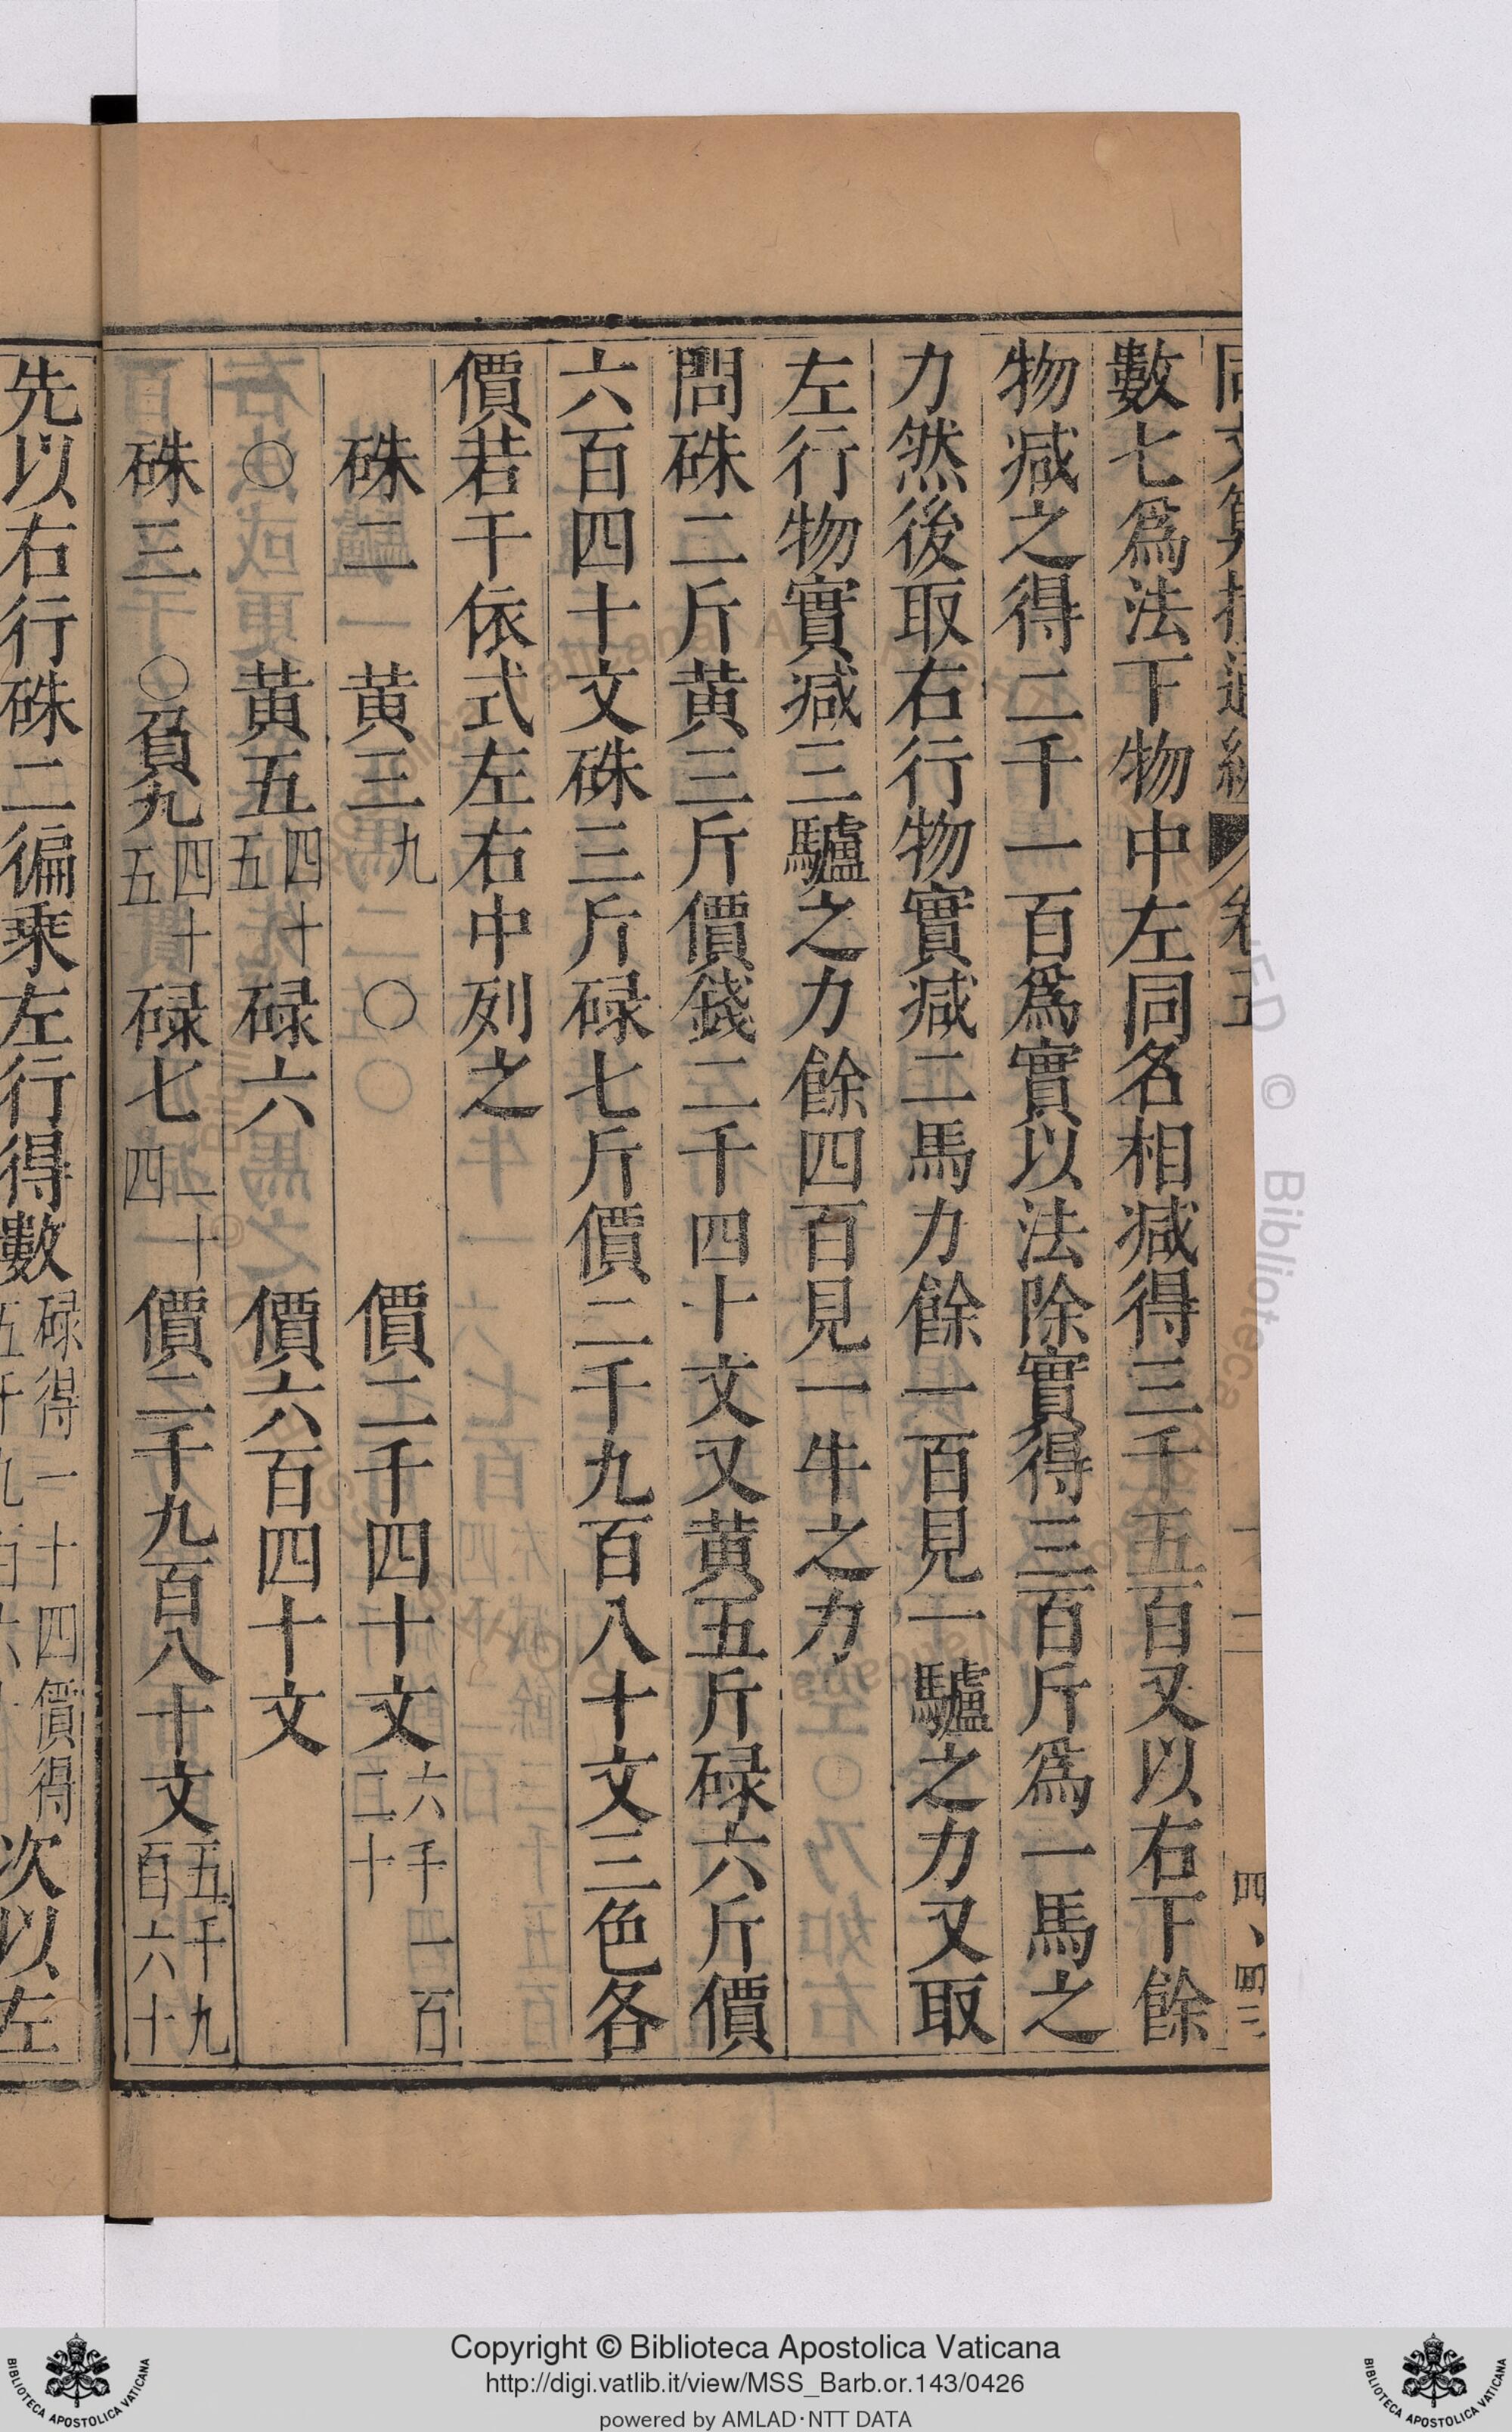 數七爲法下物中左同名相减得三千五百又以右下餘
物减之得二千一百爲實以法除實得三百斤爲一馬之
力然後取右行物實减二馬力餘一百見一驢之力又取
左行物實减三驢之力餘四百見一牛之力
問硃二斤黄三斤價錢二千四十文又黄五斤碌六斤價
六百四十文硃三斤碌七斤價二千九百八十文三色各
價若干依式左右中列之
硃二 黄三 九 〇 價二千四十文 六千一百
二十
〇 黄五 四十
五 碌六 價六百四十文
硃三 〇負九 四十
五 碌七 一十
四 價二千九百八十文 五千九
百六十
先以右行硃二徧乘左行得數 碌得一十四價得
五千九百六 次以左
Copyright © Biblioteca Apostolica Vaticana
http://digi.vatlib.it/view/MSS_Barb.or.143/0426
powered by AMLAD·NTT DATA
BIBLIOTECA APOSTOLICA VATICANA
BIBLIOTECA APOSTOLICA VATICANA